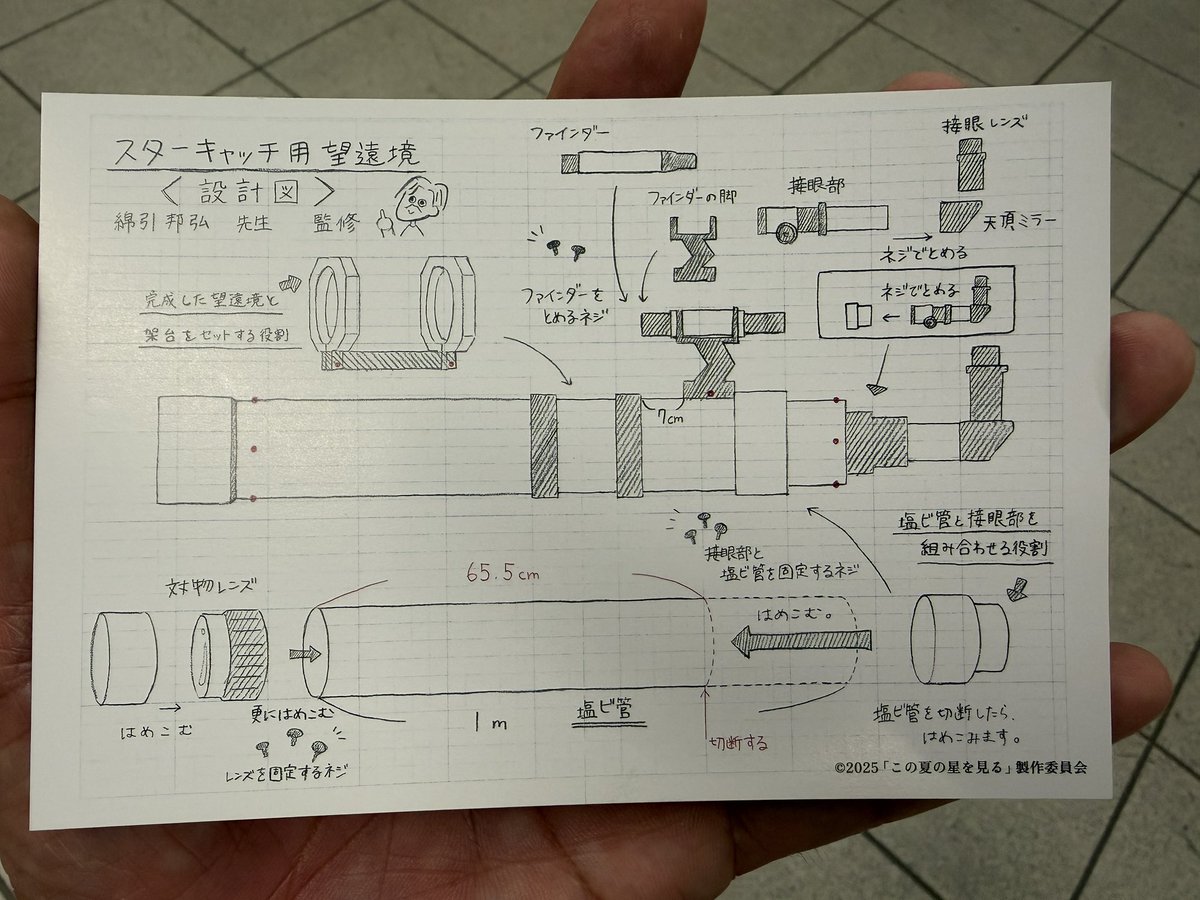 スターキャッチ用望遠境
〈設計図〉
綿引邦弘 先生 監修
完成した望遠境と
架台をセットする役割
ファインダー
ファインダーの脚
ファインダーを
とめるネジ
接眼部
接眼レンズ
天頂ミラー
ネジでとめる
ネジでとめる
7cm
塩ビ管と接眼部を
組み合わせる役割
接眼部と
塩ビ管を固定するネジ
対物レンズ
65.5cm
はめこむ。
はめこむ
更にはめこむ
レンズを固定するネジ
1m
塩ビ管
切断する
塩ビ管を切断したら、
はめこみます。
©2025「この夏の星を見る」製作委員会